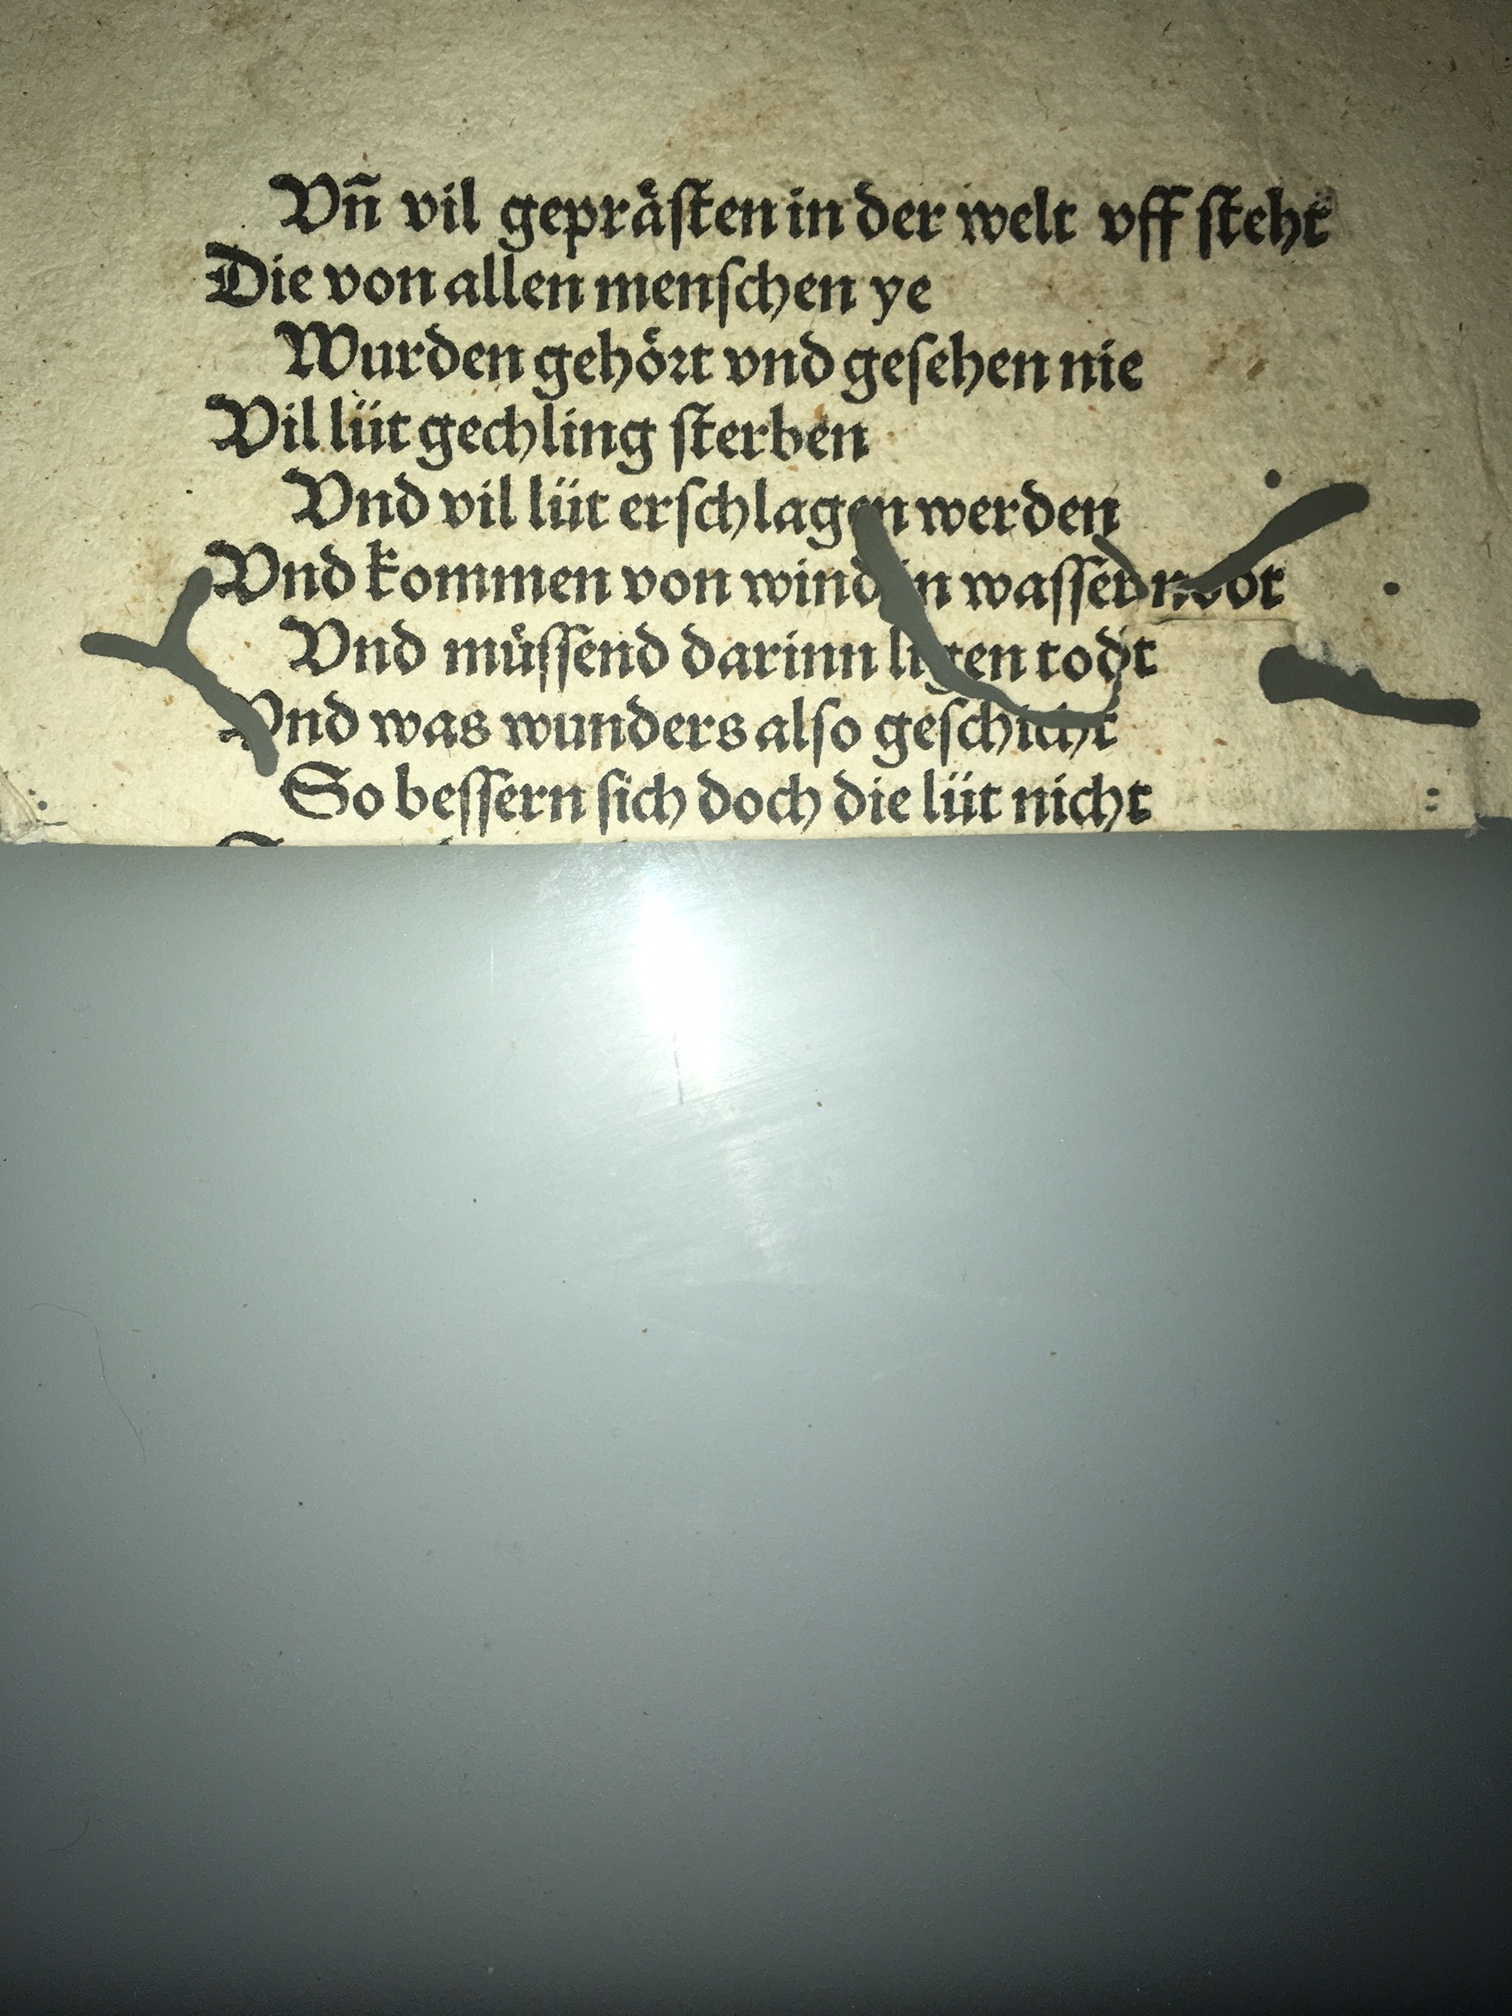 Vñ vil gepraͤſten in der welt vff ſteht
Die von allen menſchen ye
Wurden gehoͤꝛt vnd geſehen nie
Vil lüt gechling ſterben
Vnd vil lüt erſchlagen werden
Vnd kommen von wind in waſſer not
Vnd muͤſſend darinn ligen todt
Vnd was wunders alſo geſchicht
So beſſern ſich doch die lüt nicht